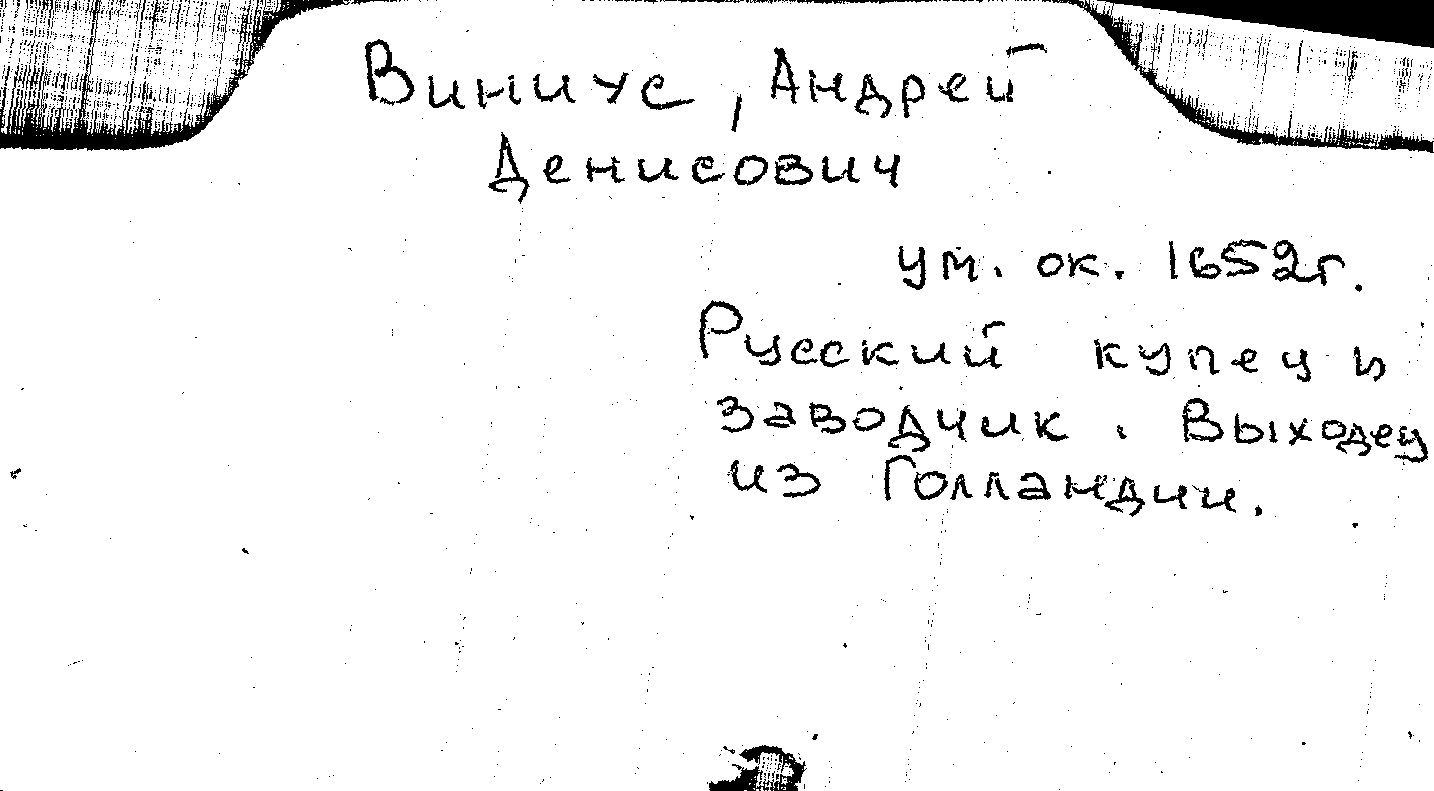 Виниус, Андрей
Денисович
ум. ок. 1652г.
Русский купец и
заводчик. Выходец
из Голландии.